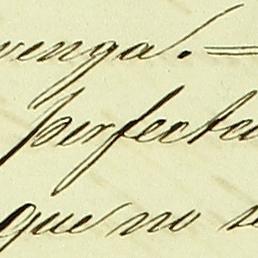 venga. =
perfecta
que no se